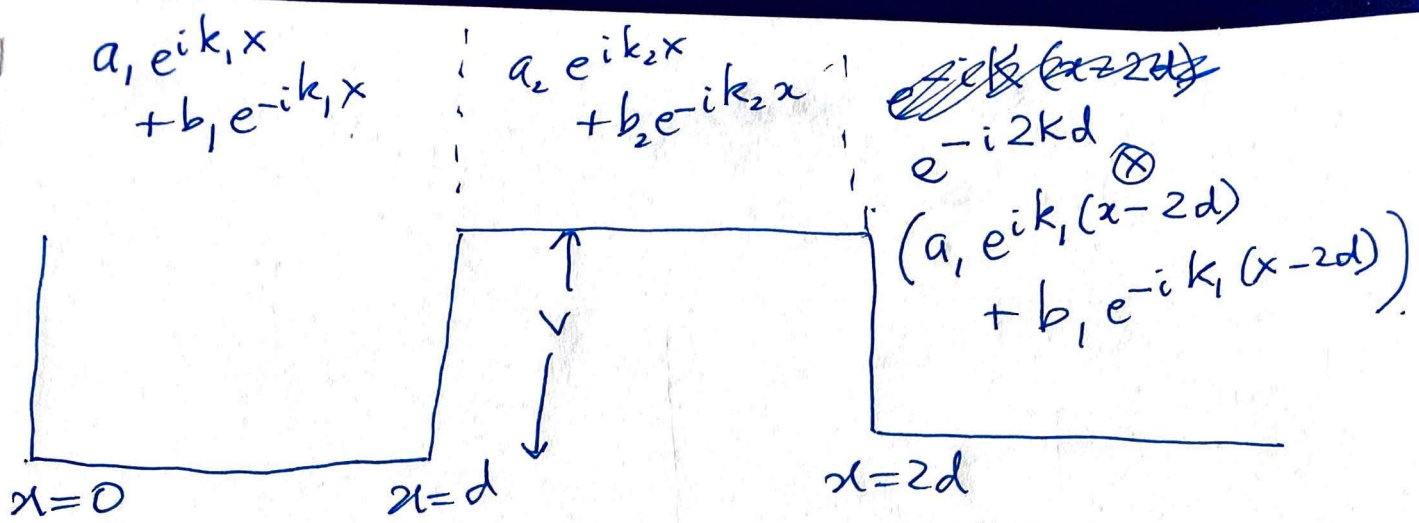 a₁ e^{ik₁x}
+b₁ e^{-ik₁x}
a₂ e^{ik₂x}
+b₂ e^{-ik₂x}
e^{-i2Kd} ⊗
(a₁ e^{ik₁(x-2d)}
+ b₁ e^{-ik₁(x-2d)}).
V
x=0
x=d
x=2d